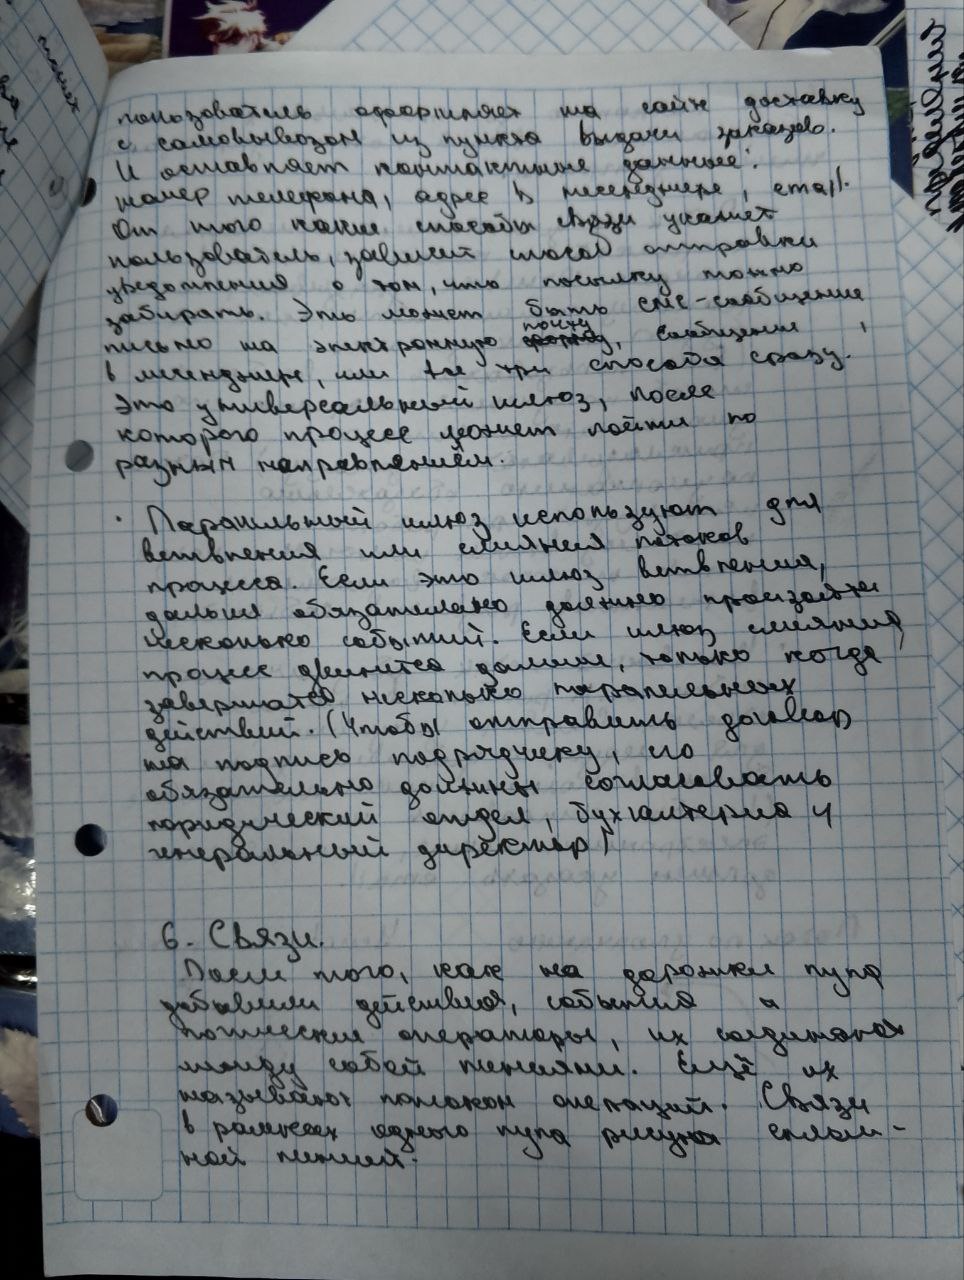 пользователь оформляет на сайте доставку
с самовывозом из пункта выдачи заказов.
И оставляет контактные данные:
номер телефона, адрес в мессенджере, email.
От того какие способы связи укажет
пользователь, зависит способ отправки
уведомления о том, что посылку можно
забирать. Это может быть смс-сообщение,
письмо на электронную почту, сообщение
в мессенджере, или все три способа сразу.
Это универсальный шлюз, после
которого процесс может пойти по
разным направлениям.
· Паралельный шлюз используют для
ветвления или слияния потоков
процесса. Если это шлюз ветвления,
дальше обязательно должно произойти
несколько событий. Если шлюз слияния,
процесс двинется дальше, только когда
завершатся несколько паралельных
действий. (Чтобы отправить договор
на подпись подрядчику, его
обязательно должны согласовать
юридический отдел, бухгалтерия и
генеральный директор)
6. Связи.
После того, как на дорожки пула
добавили действия, события и
логические операторы, их соединяют
между собой линиями. Ещё их
называют потоком операций. Связи
в рамках одного пула рисуют сплош-
ной линией.